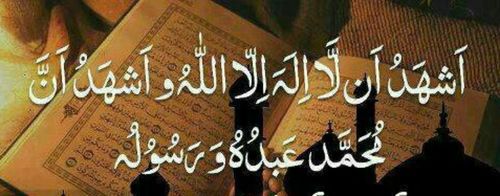 اَشهَدُ اَن لَّا اِلَهَ اِلَّا اللهُ و اَشهَدُ اَنَّ
مُحَمَّد عَبدُهُ وَ رَسُولُه